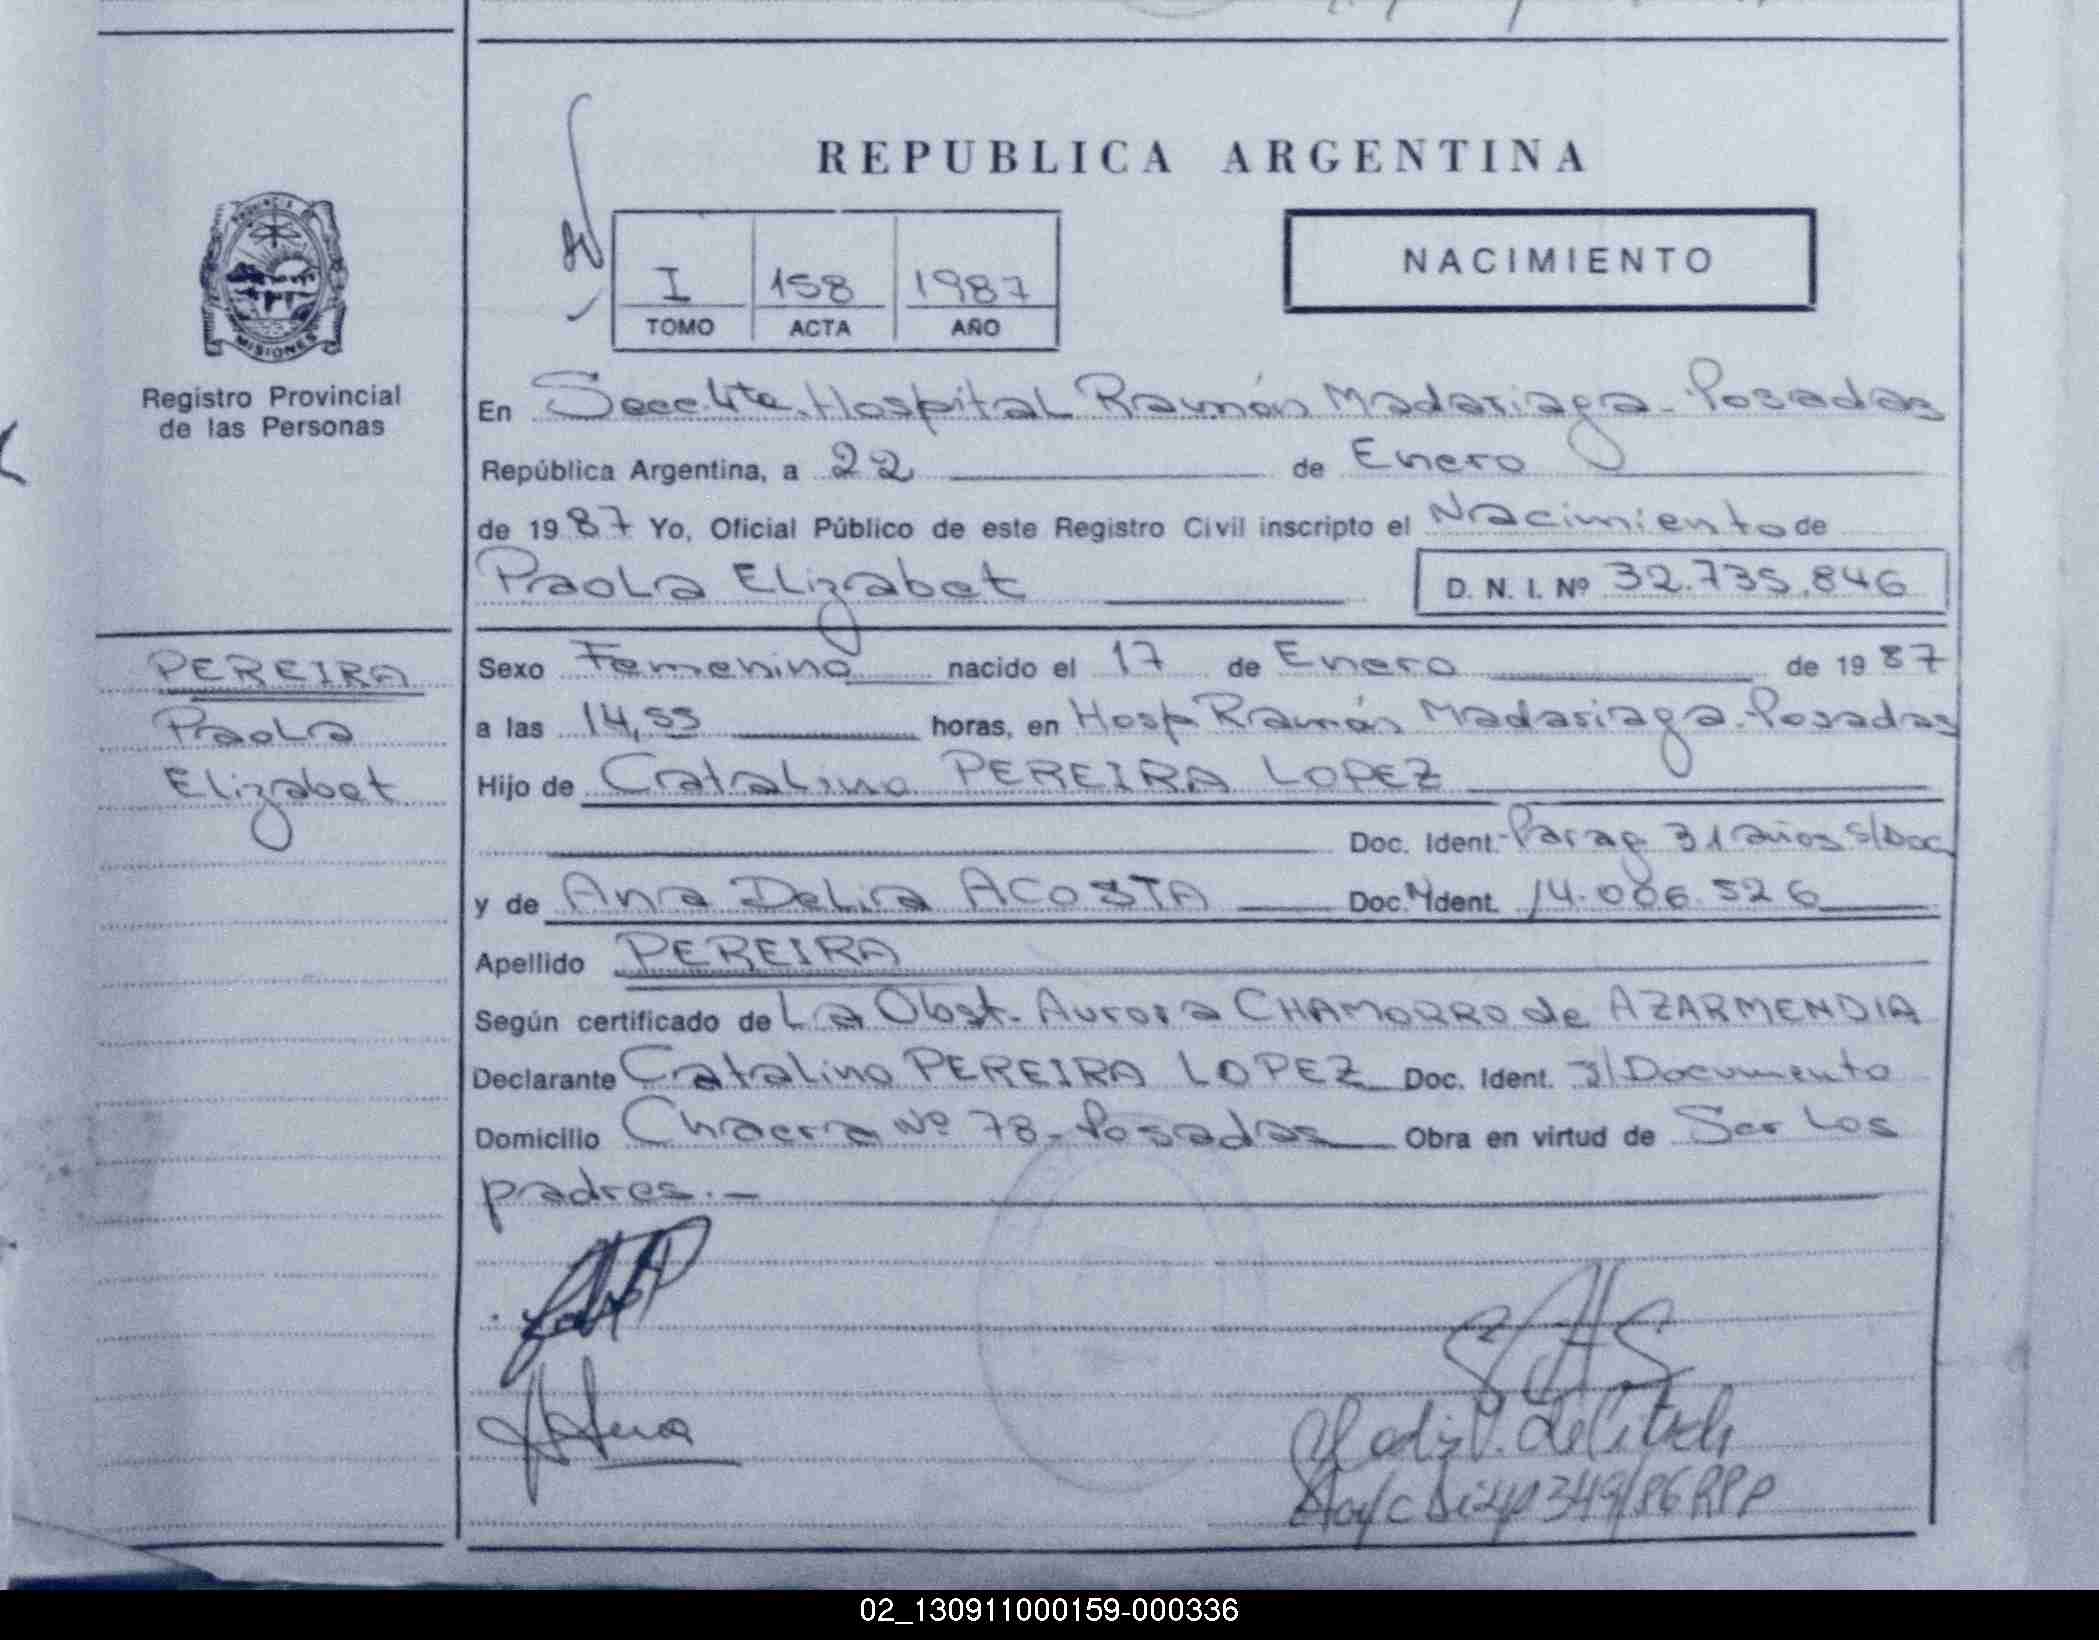 REPUBLICA ARGENTINA
NACIMIENTO
I 158 1987
TOMO ACTA AÑO
PROVINCIA
MISIONES
Registro Provincial
de las Personas
En Secc. 4ta. Hospital Ramón Madariaga - Posadas
República Argentina, a 22 de Enero
de 1987 Yo, Oficial Público de este Registro Civil inscripto el Nacimiento de
Paola Elizabet D. N. I. Nº 32.735.846
PEREIRA
Paola
Elizabet
Sexo Femenino nacido el 17 de Enero de 1987
a las 14,55 horas, en Hosp Ramón Madariaga - Posadas
Hijo de Catalino PEREIRA LOPEZ
Doc. Ident. Parag 31 años s/Doc
y de Ana Delia ACOSTA Doc. Ident. 14.006.526
Apellido PEREIRA
Según certificado de La Obst. Aurora CHAMORRO de AZARMENDIA
Declarante Catalino PEREIRA LOPEZ Doc. Ident. s/Documento
Domicilio Chacra Nº 78 - Posadas Obra en virtud de Ser los
padres. -
02_130911000159-000336